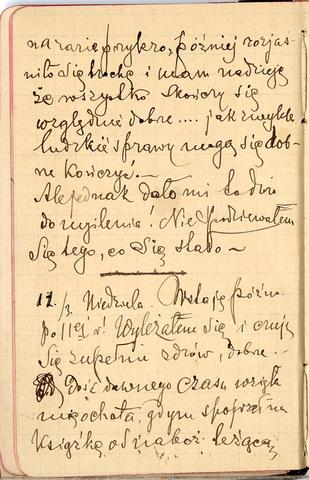 na razie przykro, później rozjaś-
niło się trochę i mam nadzieję
że wszystko skończy się
względnie dobrze .... jak zwykle
ludzkie sprawy mogą się dob-
rze kończyć. -
Ale jednak dało mi to dużo
do myślenia! Nie spodziewałem
się tego, co się stało ~
17/3. Niedziela. Wstaję późno
po 11ej w! Wyleżałem się i czuję
się zupełnie zdrów, dobrze. -
Dość dawnego czasu wzięła
mię ochota, gdym spojrzał na
książkę od naboż. leżącą